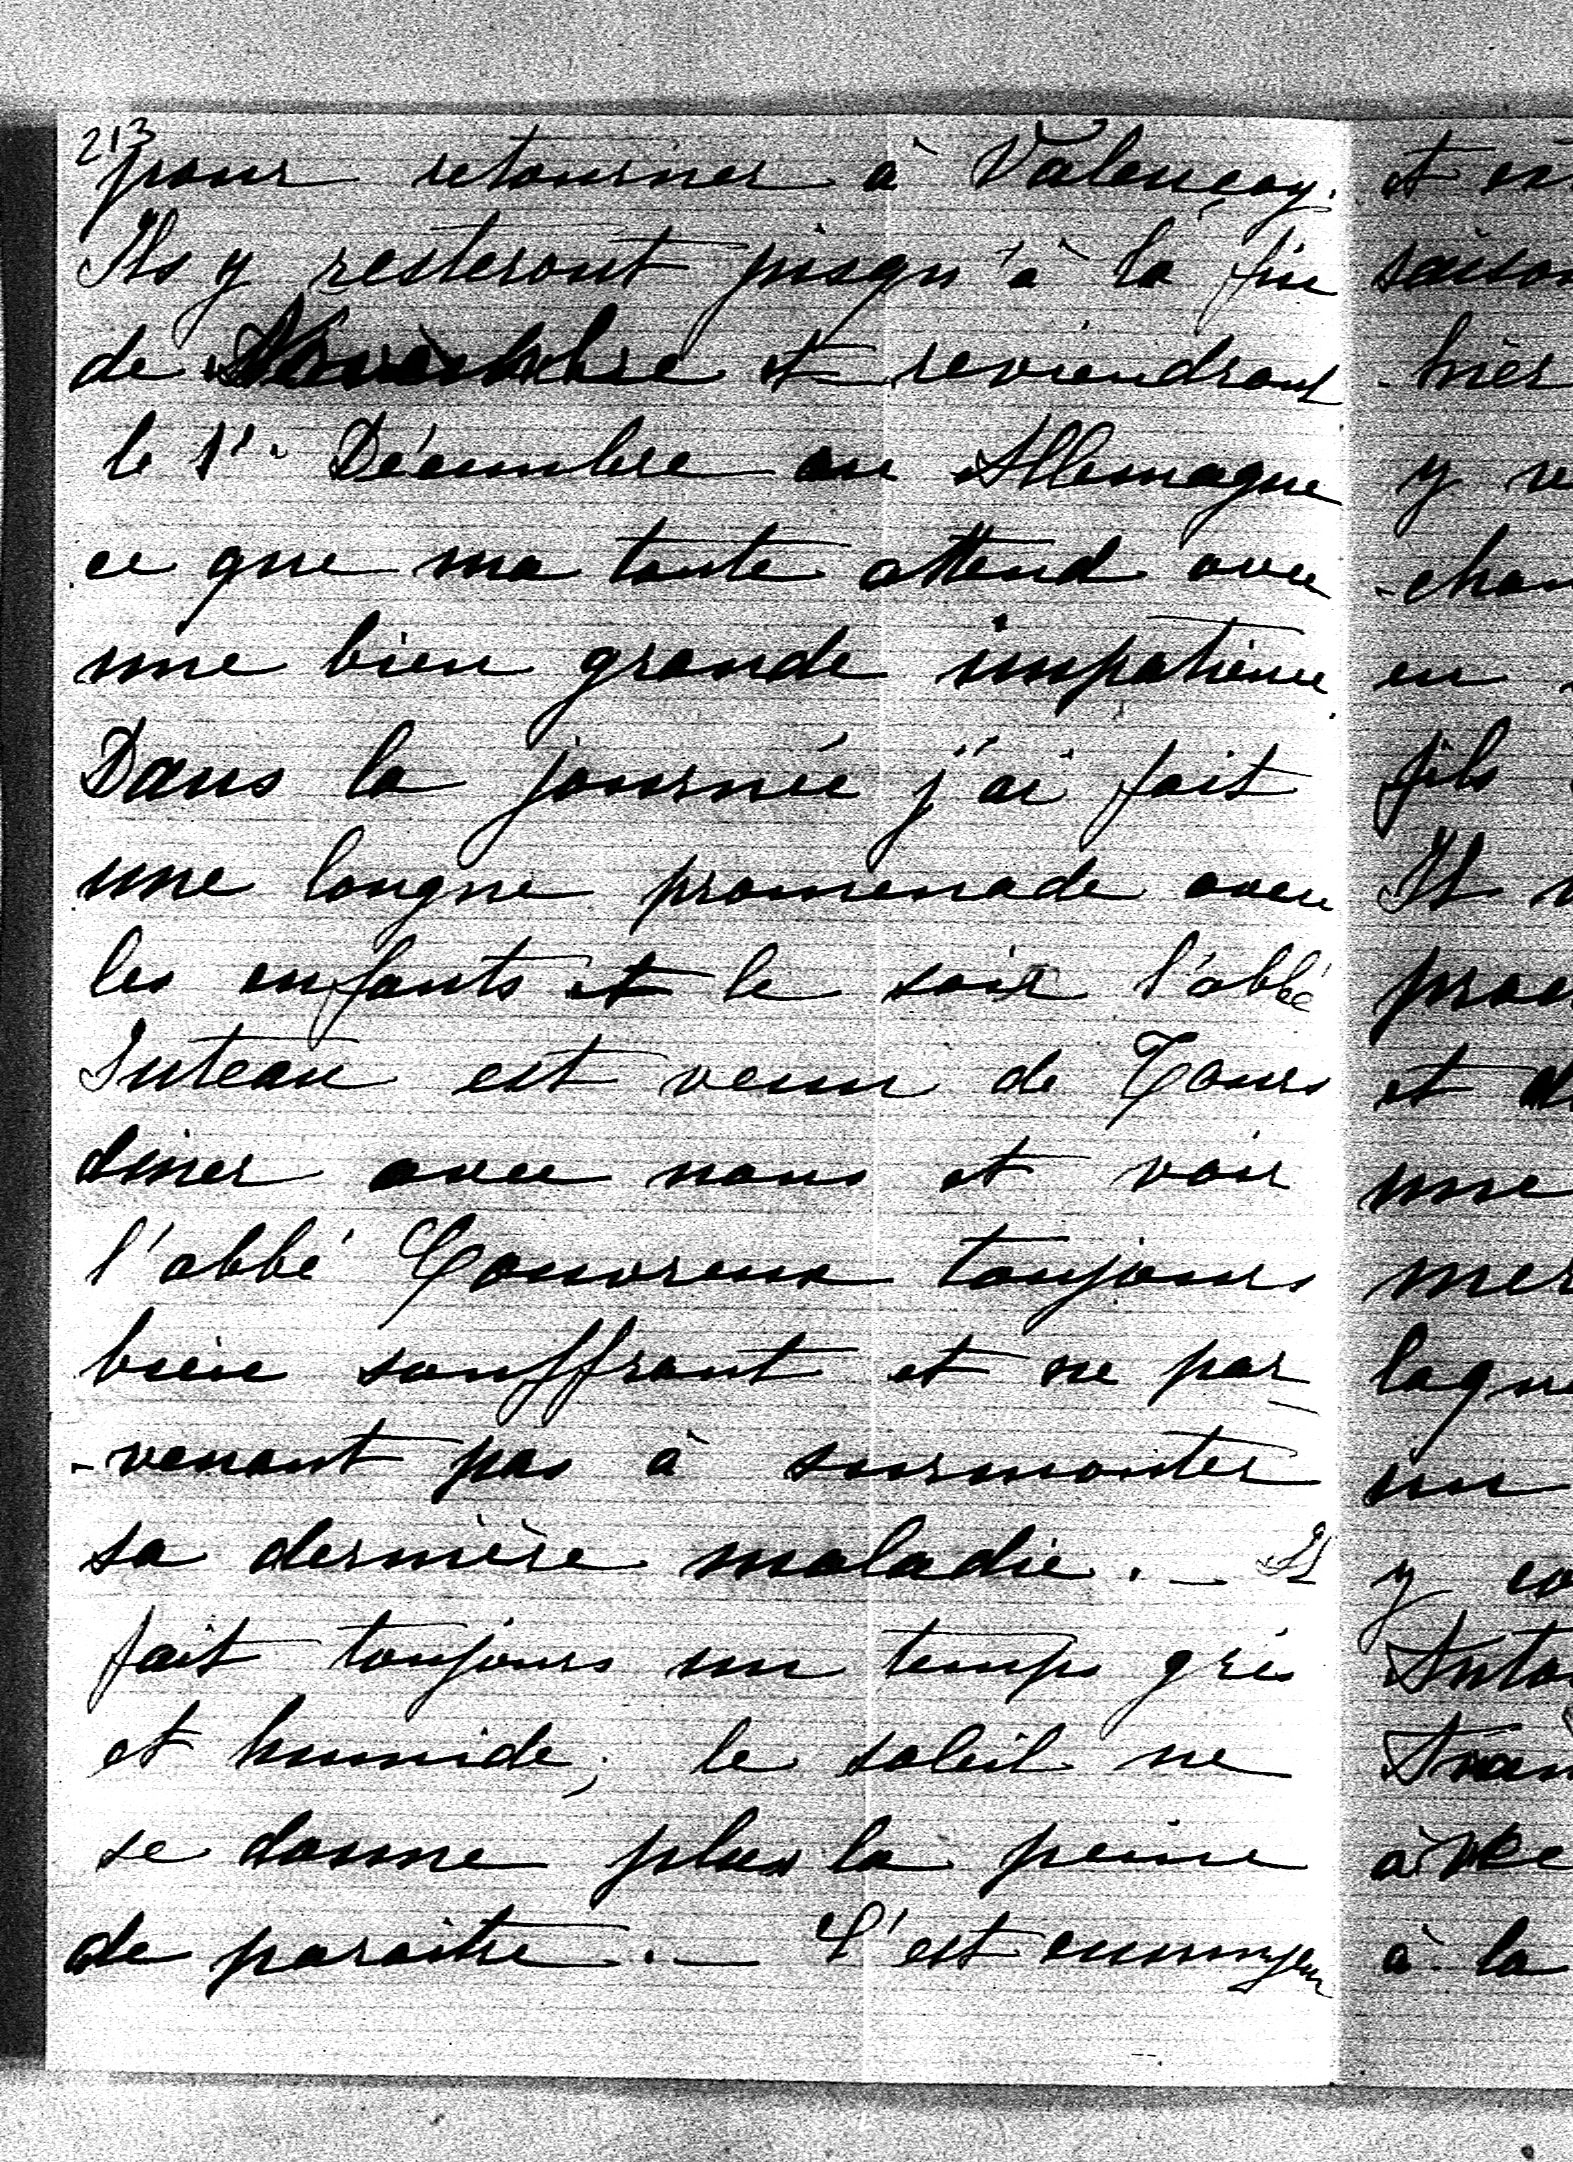 213
pour retourner à Valençay.
Ils y resteront jusqu'à la fin
de Novembre et reviendront
le 1er Décembre en Allemagne
ce que ma tante attend avec
une bien grande impatience.
Dans la journée j'ai fait
une longue promenade avec
les enfants et le soir l'abbé
Juteau est venu de Tours
diner avec nous et voir
l'abbé Couvreux toujours
bien souffrant et ne par
-venant pas à surmonter
sa dernière maladie. — Il
fait toujours un temps gris
et humide; le soleil ne
se donne plus la peine
de paraitre. — C'est ennuyeux
et
saison
-nier
y
-chan
en
fils
Il
et
une
mer
un
y
à la